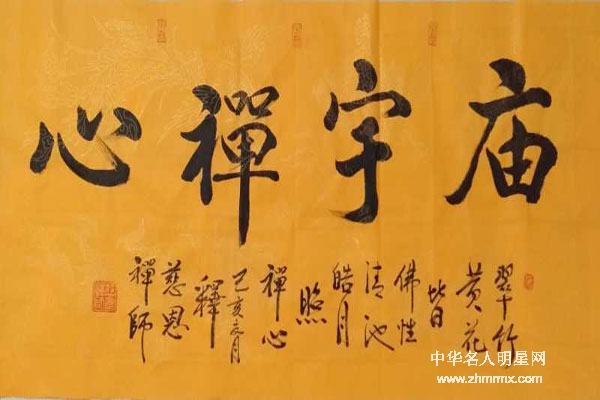 庙宇禪心
翠竹
黄花
皆
佛性
清池
皓月
照
禪心
己亥月
釋
慈恩
禪師
中华名人明星网
www.zhmrmx.com